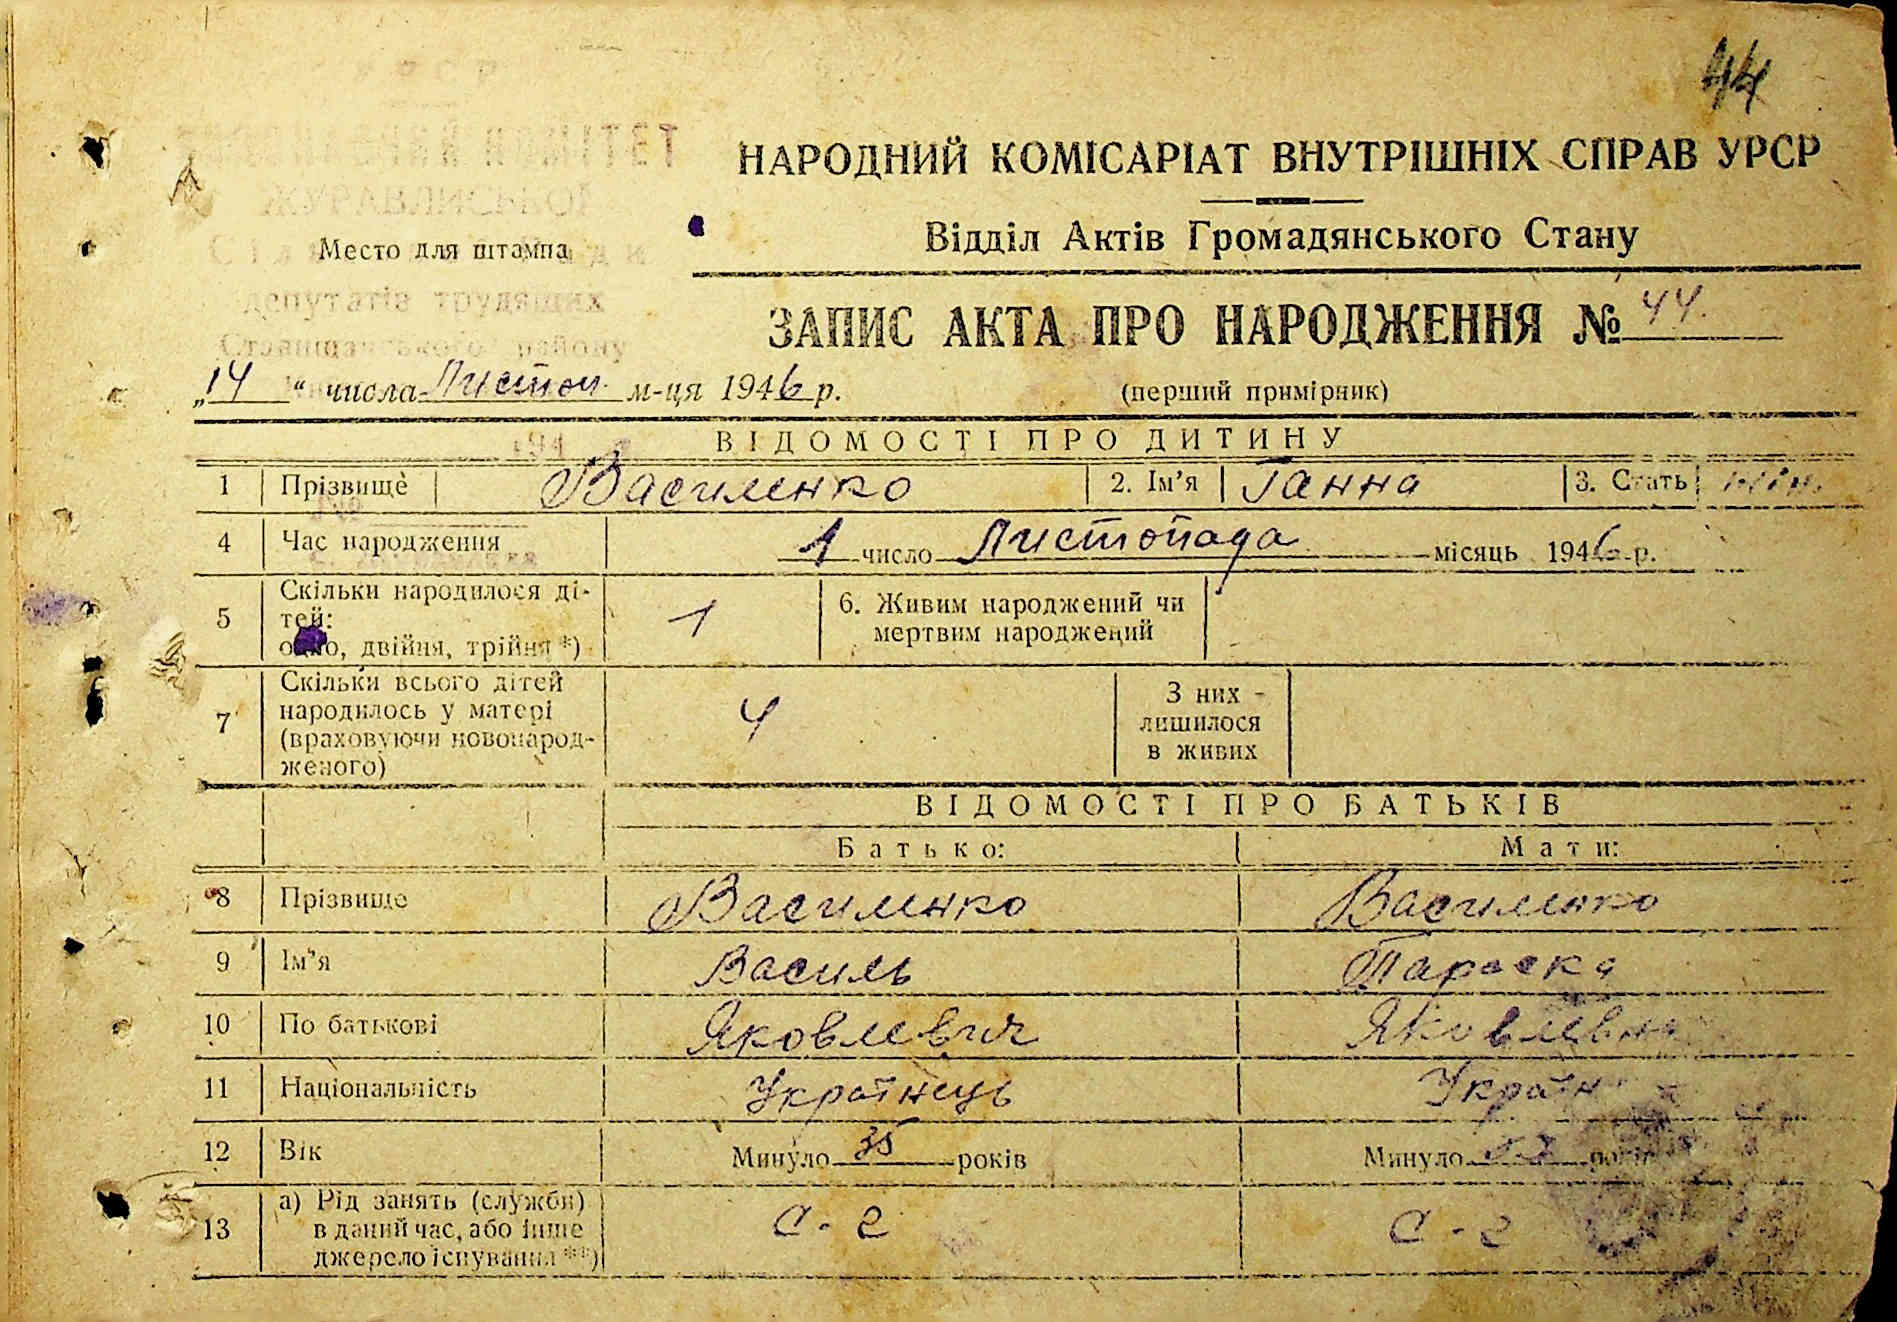 44
НАРОДНИЙ КОМІСАРІАТ ВНУТРІШНІХ СПРАВ УРСР
Відділ Актів Громадянського Стану
КОМІТЕТ
ЖУРАВЛИСЬКОЇ
Место для штампа
депутатів трудящих
району
ЗАПИС АКТА ПРО НАРОДЖЕННЯ № 44.
„14“ числа Листоп. м-ця 1946 р.
(перший примірник)
ВІДОМОСТІ ПРО ДИТИНУ
1 Прізвище Василенко 2. Ім'я Ганна 3. Стать жін.
4 Час народження 1 число Листопада місяць 1946 р.
5 Скільки народилося ді-
тей:
одно, двійня, трійня *) 1 6. Живим народжений чи
мертвим народжений
7 Скільки всього дітей
народилось у матері
(враховуючи новонарод-
женого) 4 З них
лишилося
в живих
ВІДОМОСТІ ПРО БАТЬКІВ
Батько: Мати:
8 Прізвище Василенко Василенко
9 Ім'я Василь Параска
10 По батькові Яковлевич Яковлевн
11 Національність Українець Україн
12 Вік Минуло 35 років Минуло років
13 а) Рід занять (служби)
в даний час, або інше
джерело існування **) С-г С-г